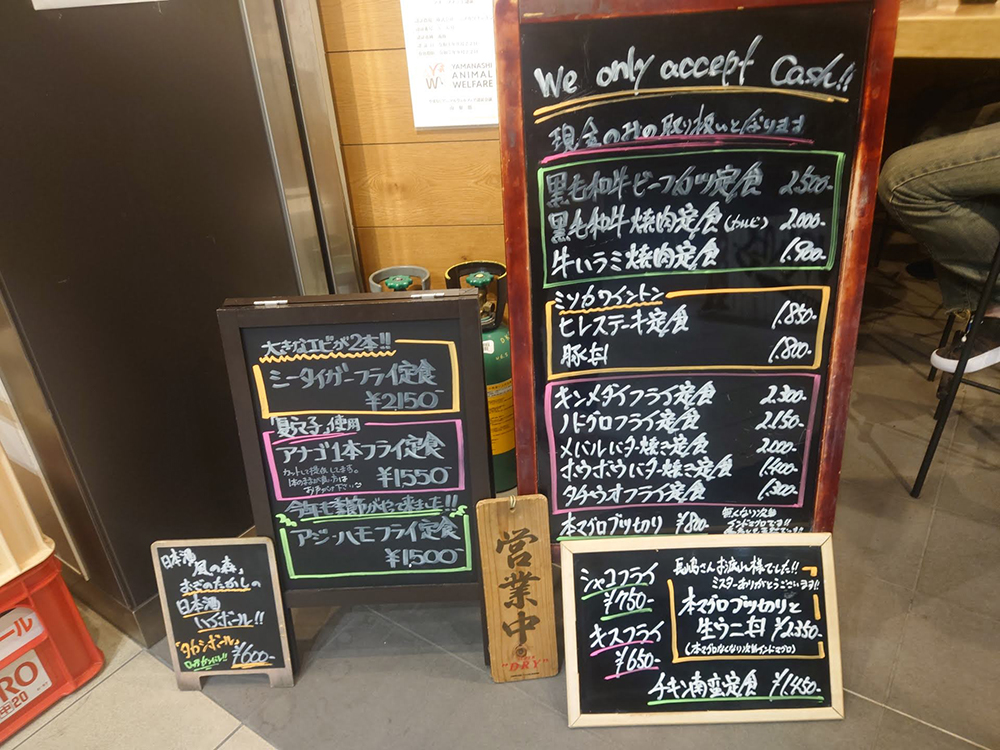 YAMANASHI
ANIMAL
WELFARE
We only accept Cash!!
現金のみの取り扱いとなります
黒毛和牛ビーフカツ定食 2.500-
黒毛和牛焼肉定食(カルビ) 2.000-
牛ハラミ焼肉定食 1.900-
ミツカワイントン
ヒレステーキ定食 1.850-
豚丼 1.800-
キンメダイフライ定食 2.300-
ノドグロフライ定食 2.150-
メバルバター焼き定食 2.000-
ホウボウバター焼き定食 1.400-
タチウオフライ定食 1.300-
本マグロブツ切り ¥800-
無くなり次第
インドマグロです!!
大きなエビが2本!!
シータイガーフライ定食
¥2150-
アナゴ1本フライ定食
カットして提供してます。
¥1550-
今年も季節がやって来ました!!
アジ・ハモフライ定食
¥1,500-
日本酒
「風の森」
おぎのたかしの
日本酒
ハイボール!!
「タカシボール」
¥600-
営業中
"DRY"
シャコフライ
¥750-
キスフライ
¥650-
長嶋さんお疲れ様でした!!
ミスターありがとうございます!!
本マグロブツ切りと
生ウニ丼 ¥2.350-
(本マグロなくなり次第インドマグロ)
チキン南蛮定食 ¥1.450-